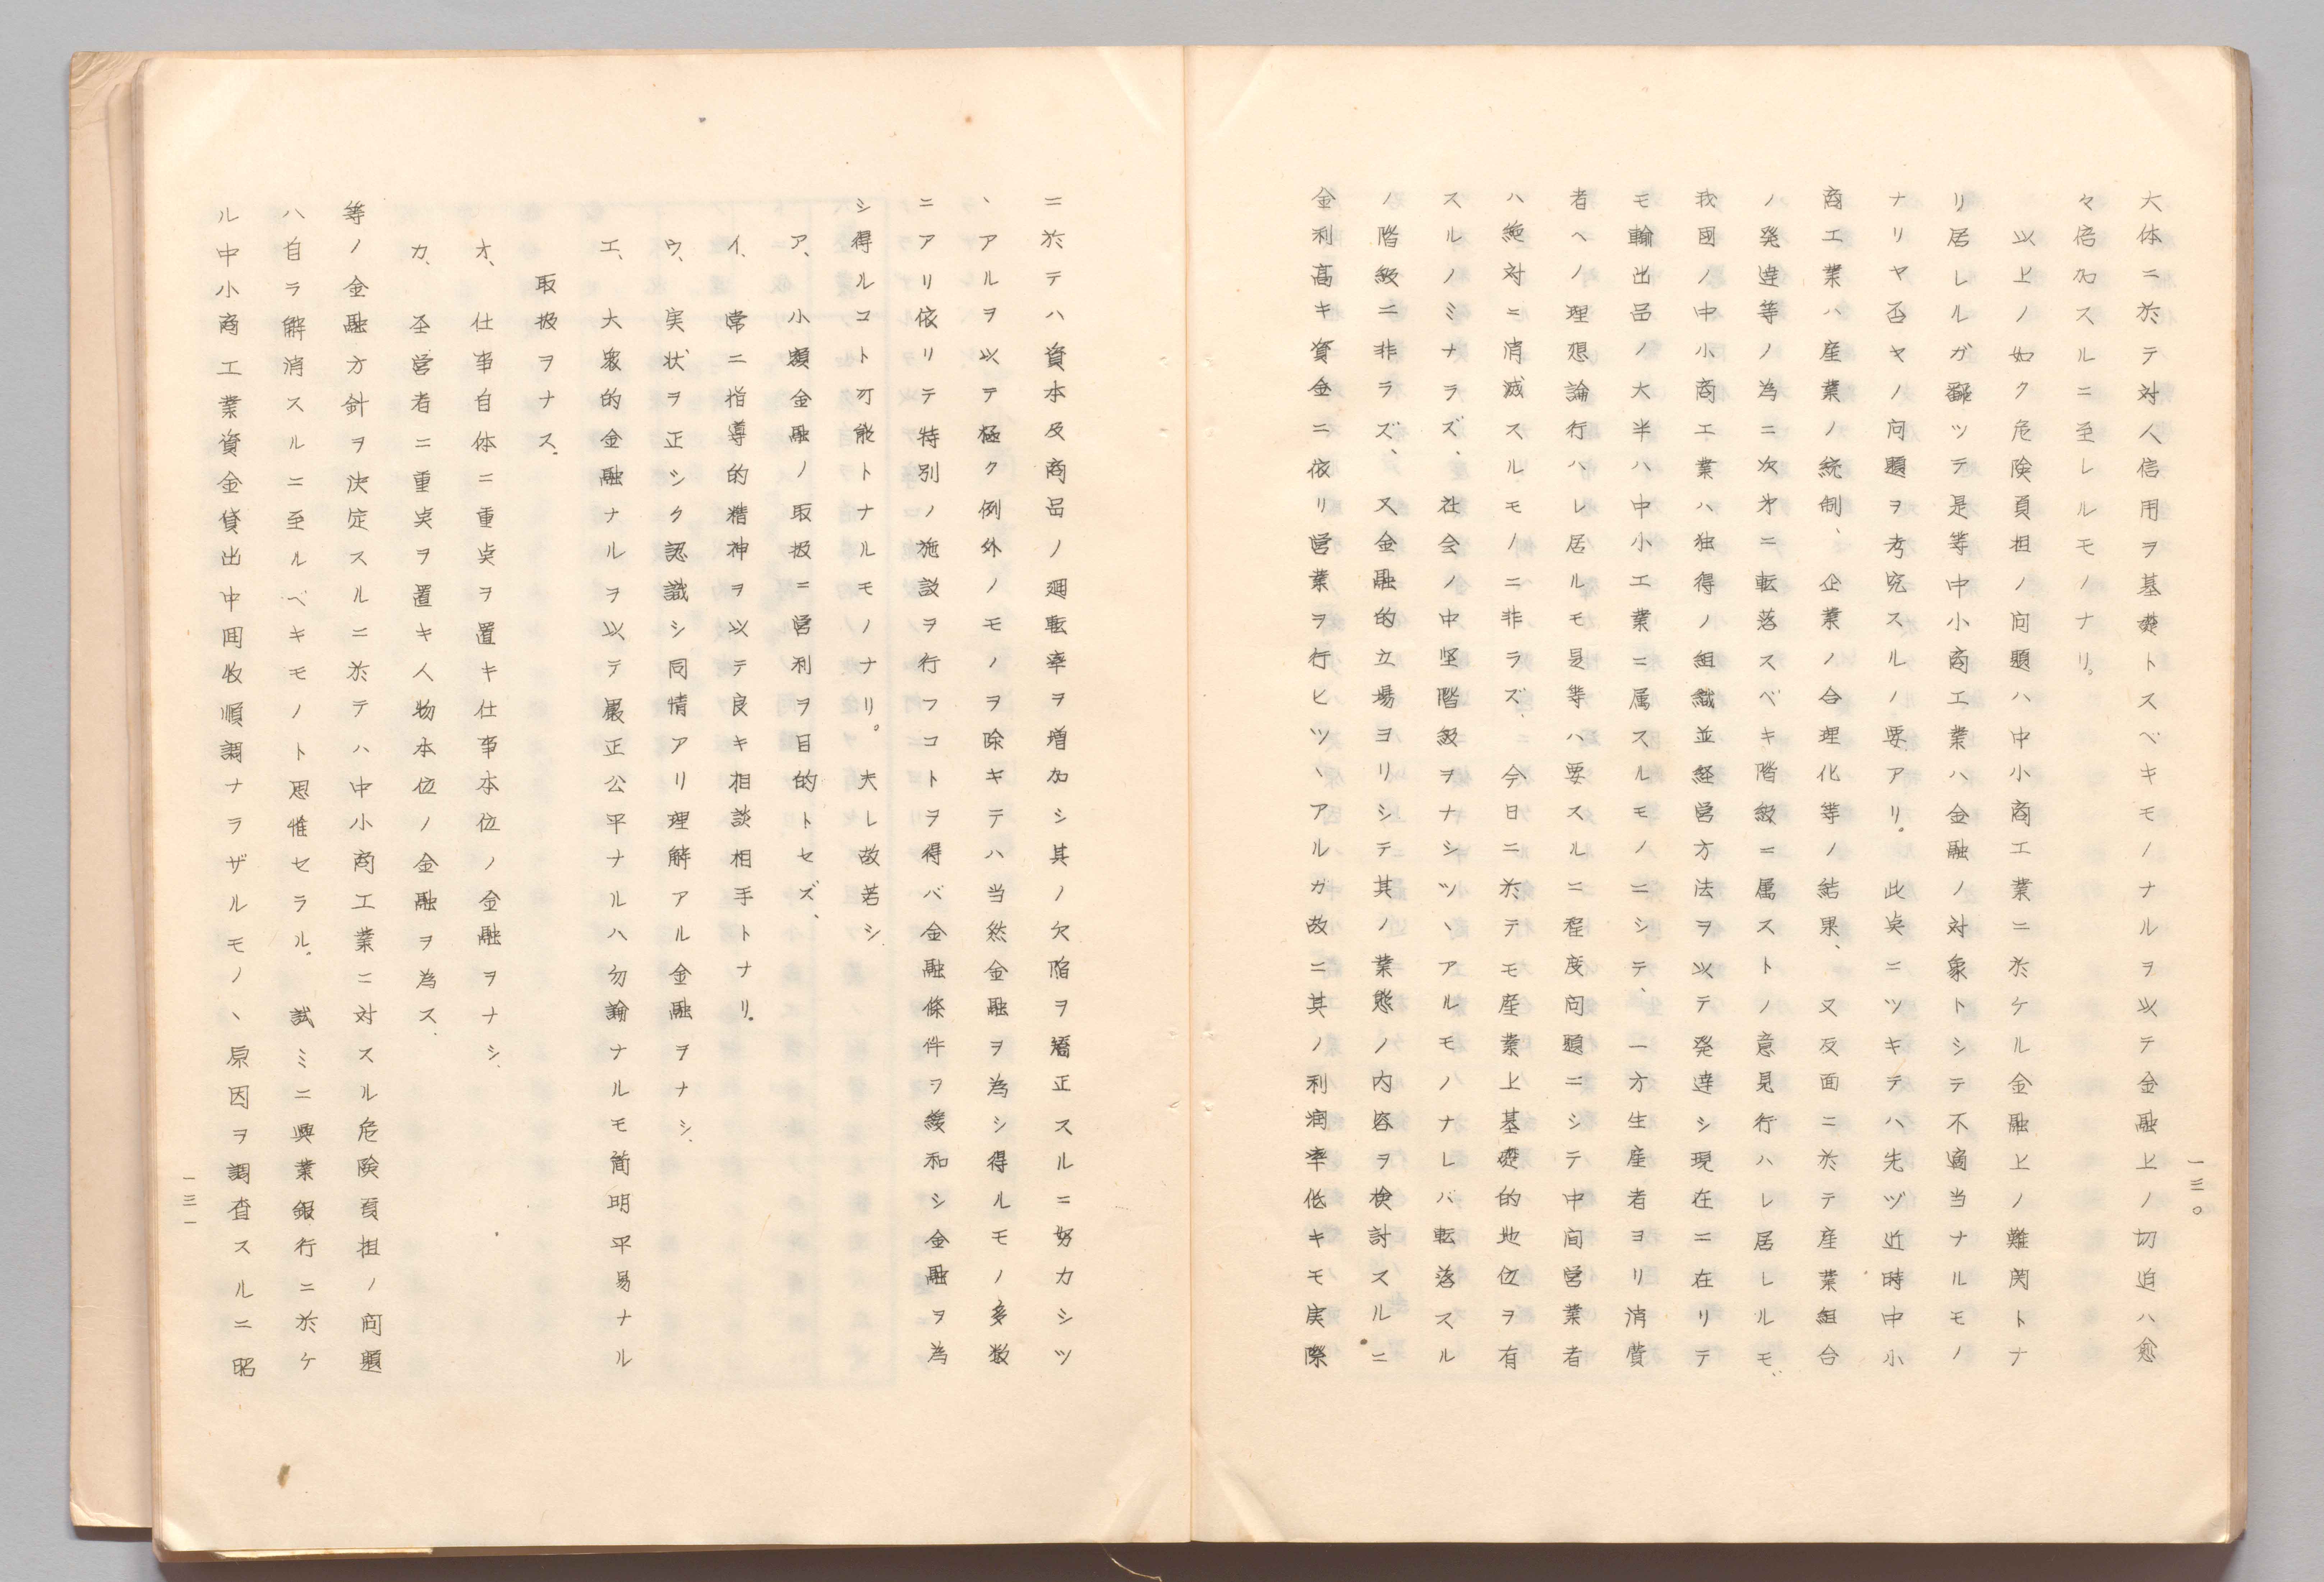 一三〇
大体ニ於テ対人信用ヲ基礎トスベキモノナルヲ以テ金融上ノ切迫ハ愈
々倍加スルニ至レルモノナリ。
以上ノ如ク危険負担ノ問題ハ中小商工業ニ於ケル金融上ノ難関トナ
リ居レルガ飜ツテ是等中小商工業ハ金融ノ対象トシテ不適当ナルモノ
ナリヤ否ヤノ問題ヲ考究スルノ要アリ。此点ニツキテハ先ヅ近時中小
商工業ハ産業ノ統制、企業ノ合理化等ノ結果、又反面ニ於テ産業組合
ノ発達等ノ為ニ次才ニ転落スベキ階級ニ属ストノ意見行ハレ居レルモ、
我國ノ中小商工業ハ独得ノ組織並経営方法ヲ以テ発達シ現在ニ在リテ
モ輸出品ノ大半ハ中小工業ニ属スルモノニシテ、一方生産者ヨリ消費
者ヘノ理想論行ハレ居ルモ是等ハ要スルニ程度問題ニシテ中間営業者
ハ絶対ニ消滅スルモノニ非ラズ、今日ニ於テモ産業上基礎的地位ヲ有
スルノミナラズ、社会ノ中堅階級ヲナシツヽアルモノナレバ転落スル
ノ階級ニ非ラズ、又金融的立場ヨリシテ其ノ業態ノ内容ヲ検討スルニ
金利高キ資金ニ依リ営業ヲ行ヒツヽアルガ故ニ其ノ利潤率低キモ実際
ニ於テハ資本及商品ノ廻転率ヲ増加シ其ノ欠陥ヲ矯正スルニ努力シツ
ヽアルヲ以テ極ク例外ノモノヲ除キテハ当然金融ヲ為シ得ルモノ多数
ニアリ依リテ特別ノ施設ヲ行フコトヲ得バ金融條件ヲ緩和シ金融ヲ為
シ得ルコト可能トナルモノナリ。夫レ故若シ
ア、小額金融ノ取扱ニ営利ヲ目的トセズ、
イ、常ニ指導的精神ヲ以テ良キ相談相手トナリ。
ウ、実状ヲ正シク認識シ同情アリ理解アル金融ヲナシ、
エ、大衆的金融ナルヲ以テ厳正公平ナルハ勿論ナルモ簡明平易ナル
取扱ヲナス、
オ、仕事自体ニ重点ヲ置キ仕事本位ノ金融ヲナシ、
カ、圣営者ニ重点ヲ置キ人物本位ノ金融ヲ為ス、
等ノ金融方針ヲ決定スルニ於テハ中小商工業ニ対スル危険負担ノ問題
ハ自ラ解消スルニ至ルベキモノト思惟セラル。試ミニ興業銀行ニ於ケ
ル中小商工業資金貸出中囬收順調ナラザルモノヽ原因ヲ調査スルニ昭
一三一